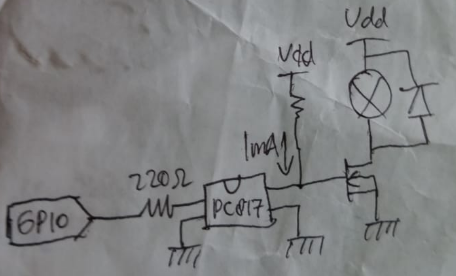 Vdd
Vdd
1mA
220Ω
GPIO
PC817